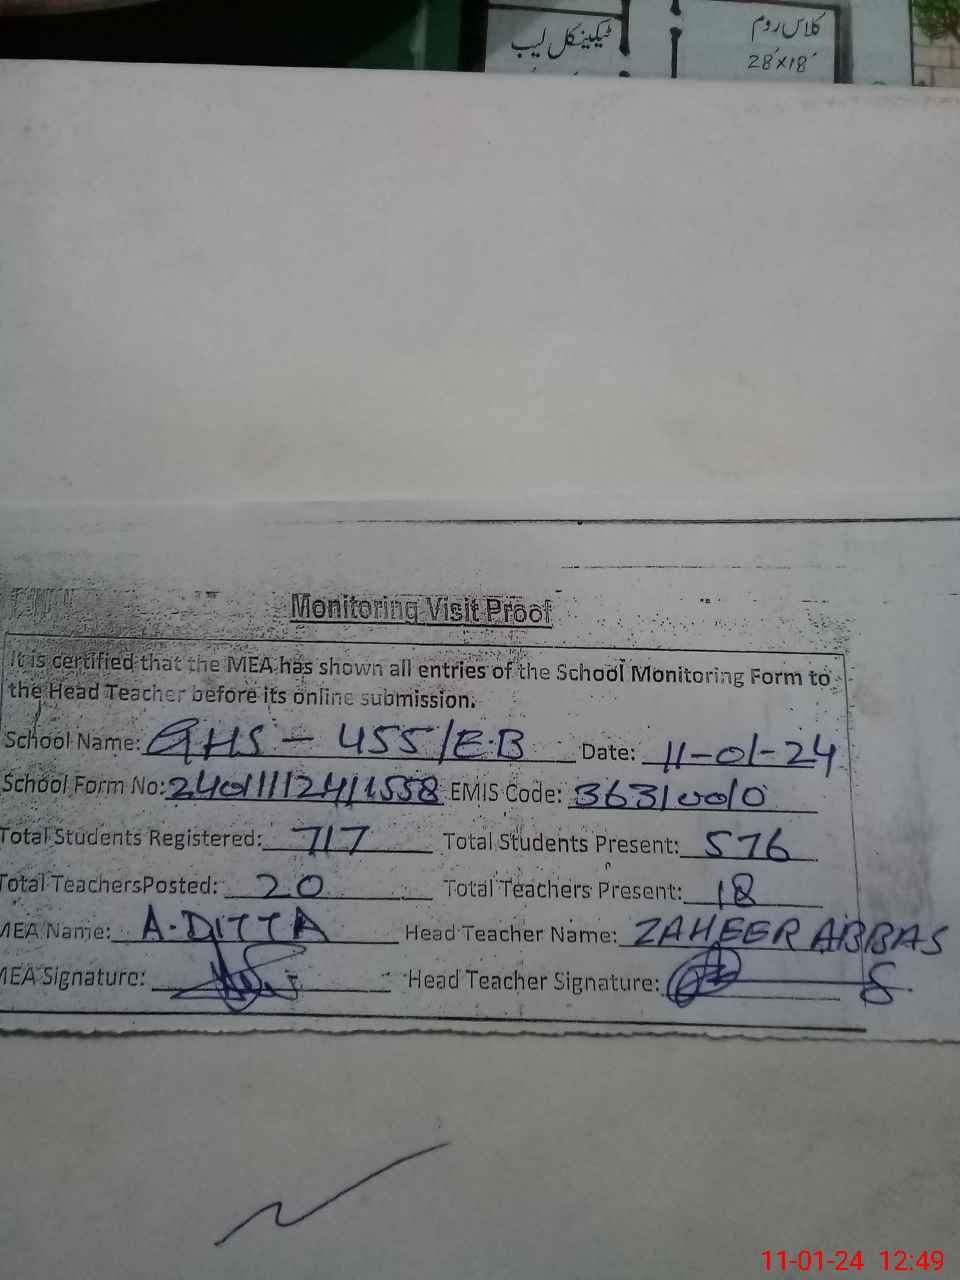 ٹیکنیکل لیب
کلاس روم
28'x18'
Monitoring Visit Proof
It is certified that the MEA has shown all entries of the School Monitoring Form to
the Head Teacher before its online submission.
School Name: GHS - 455/E.B Date: 11-01-24
School Form No: EMIS Code: 36310010
Total Students Registered: 717 Total Students Present: 576
Total TeachersPosted: 20 Total Teachers Present: 18
MEA Name: A.DITTA Head Teacher Name: ZAHEER ABBAS
MEA Signature: Head Teacher Signature:
11-01-24 12:49